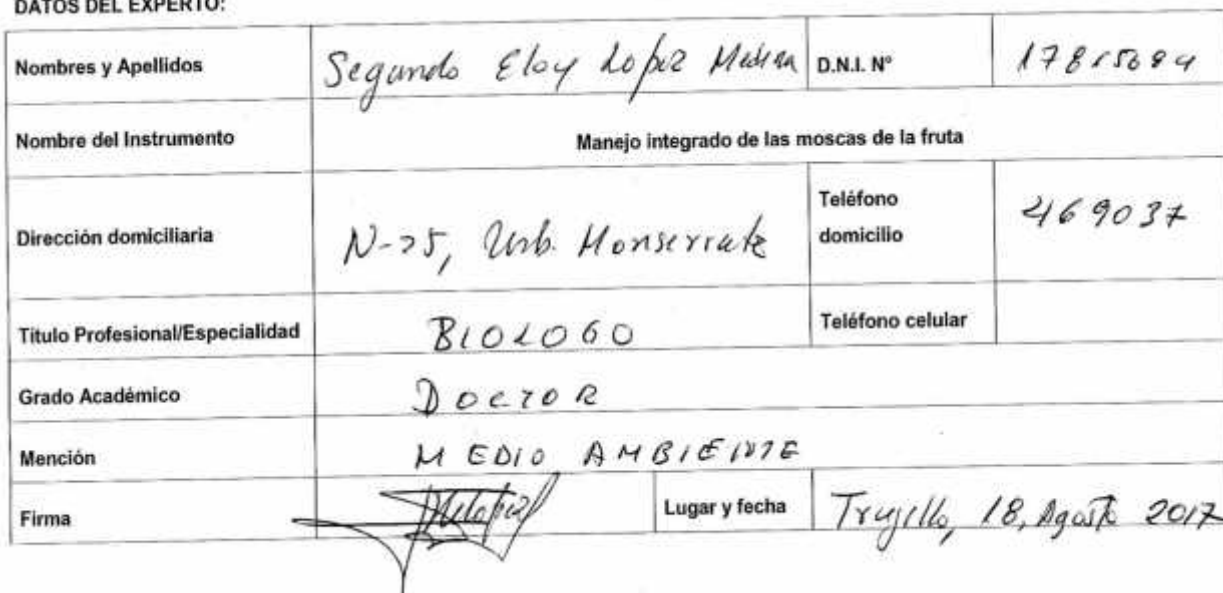 DATOS DEL EXPERTO:
Nombres y Apellidos Segundo Eloy Lopez Medina D.N.I. N° 17815694
Nombre del Instrumento Manejo integrado de las moscas de la fruta
Dirección domiciliaria N-25, Urb. Monserrate Teléfono domicilio 469037
Título Profesional/Especialidad BIOLOGO Teléfono celular
Grado Académico DOCTOR
Mención MEDIO AMBIENTE
Firma Lugar y fecha Trujillo, 18, Agosto 2017